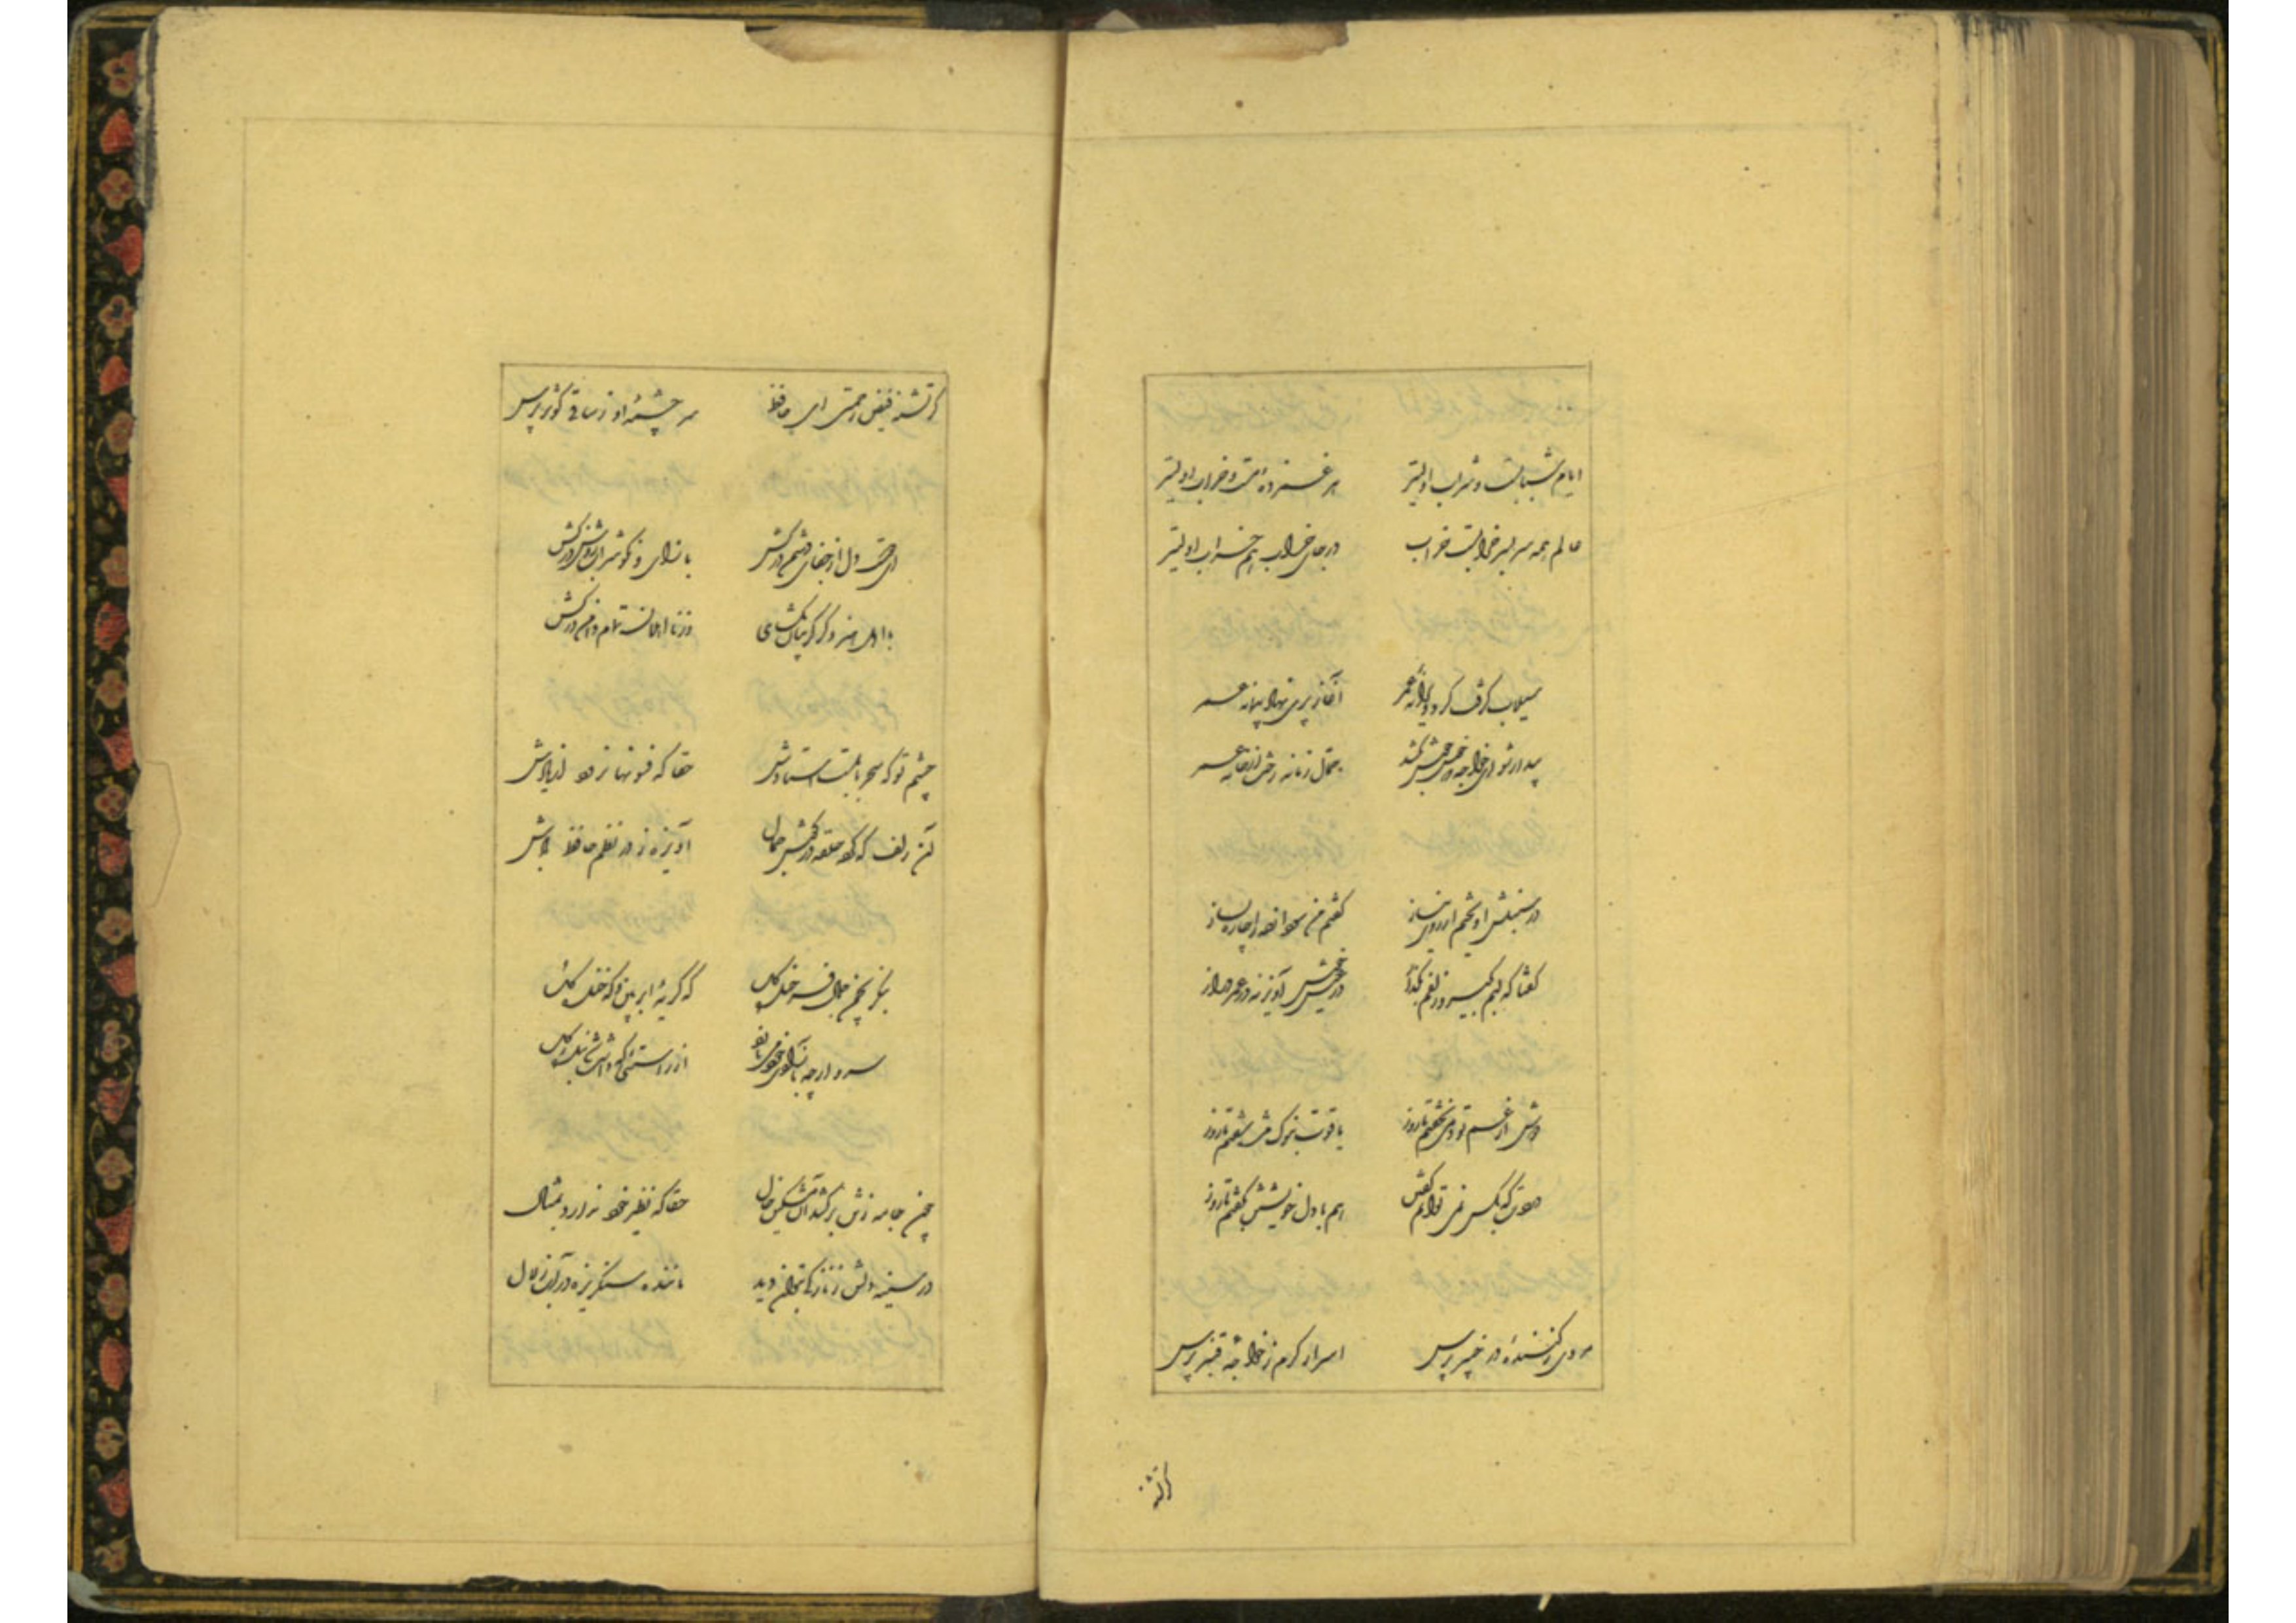 ایام شبابست و شراب اولیتر هر غمزده مست و خراب اولیتر
عالم همه سر بسر خرابست خراب در جای خراب هم خراب اولیتر
سیلاب گرفت گرد ویرانه عمر آغاز پری نهاد پیمانه عمر
بیدار شو ای خواجه که خوش خوش بکشد حمال زمانه رخت از خانه عمر
در سنبلش آویختم از روی نیاز گفتم من سودازده را چاره بساز
گفتا که لبم بگیر و زلفم بگذار در عیش خوش آویز نه در عمر دراز
دوش از غم تو دمی نخفتم تا روز یاقوت بنوک مژه سفتم تا روز
دردت که بکس نمی توانم گفتن هم با دل خویشتن بگفتم تا روز
مردی ز کننده در خیبر پرس اسرار کرم ز خواجه قنبر پرس
گر تشنه
گر تشنه فیض رحمتی ای حافظ سر چشمهٔ او ز ساقی کوثر پرس
ای دوست دل از جفای دشمن درکش با روی نکو شراب روشن درکش
با اهل هنر گریبان بگشای وز نااهلان تمام دامن درکش
چشم تو که سحر بابلست استادش حقا که فسونها نرود از یادش
آن زلف که کرد حلقه در گوش جمال آویزه ز در نظم حافظ بادش
بنگر بچمن جمال فرخ گل که گریهٔ ابر بین و گه خنده گل
سرو ارچه بآزادی خود می نازد از راستیی که داشت شد بنده گل
چون جامه ز تن برکشد آن مشکین خال حقا که نظیر خود ندارد بمثال
در سینه دلش ز نازکی بتوان دید ماننده سنگریزه در آب زلال